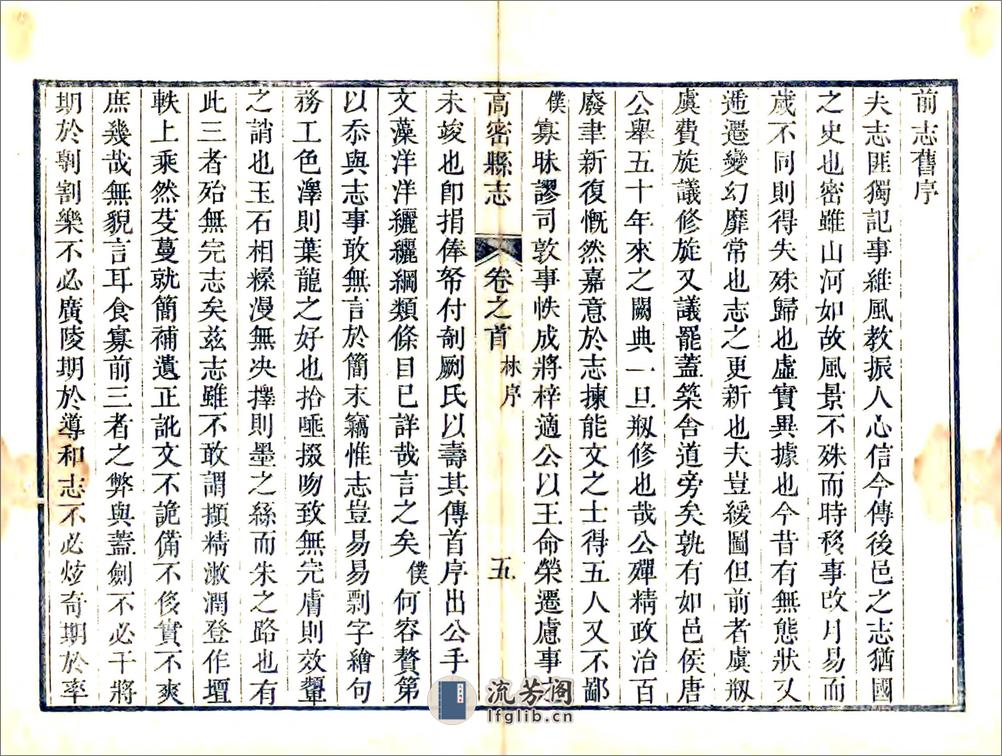 前志舊序
夫志匪獨記事維風教振人心信今傳後邑之志猶國
之史也密雖山河如故風景不殊而時移事改月易而
歲不同則得失殊歸也虛實異據也今昔有無態狀又
遞遷變幻靡常也志之更新也夫豈緩圖但前者虞剏
虞費旋議修旋又議罷蓋築舍道旁矣孰有如邑侯唐
公舉五十年來之闕典一旦剏修也哉公殫精政治百
廢聿新復慨然嘉意於志揀能文之士得五人又不鄙
僕寡昧謬司敦事帙成將梓適公以王命榮遷慮事之
高密縣志 卷之首 林序 五
未竣也卽捐俸帑付剞劂氏以壽其傳首序出公手
文藻洋洋纚纚綱類條目已詳哉言之矣僕何容贅第
以忝與志事敢無言於簡末竊惟志豈易易剽字繪句
務工色澤則葉龍之好也拾唾掇吻致無完膚則效顰
之誚也玉石相糅漫無決擇則墨之絲而朱之路也有
此三者殆無完志矣茲志雖不敢謂擷精漱潤登作壇
軼上乘然芟蔓就簡補遺正訛文不詭備不侈實不爽
庶幾哉無貌言耳食寡前三者之弊與蓋劍不必干將
期於剸割樂不必廣陵期於導和志不必炫奇期於率
流芳閣
lfglib.cn